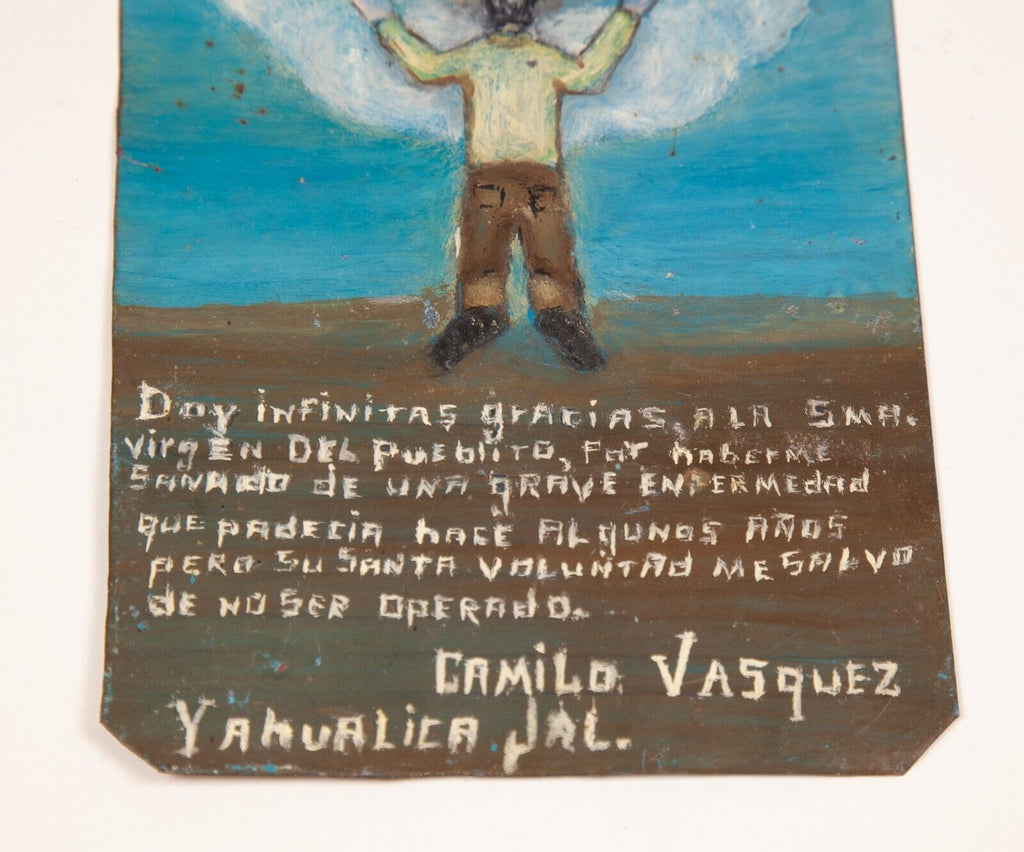 Doy infinitas gracias, a la Sma.
virgen del pueblito, por haberme
sanado de una grave enfermedad
que padecia hace algunos años
pero su santa voluntad me salvo
de no ser operado.
Camilo Vasquez
Yahualica Jal.